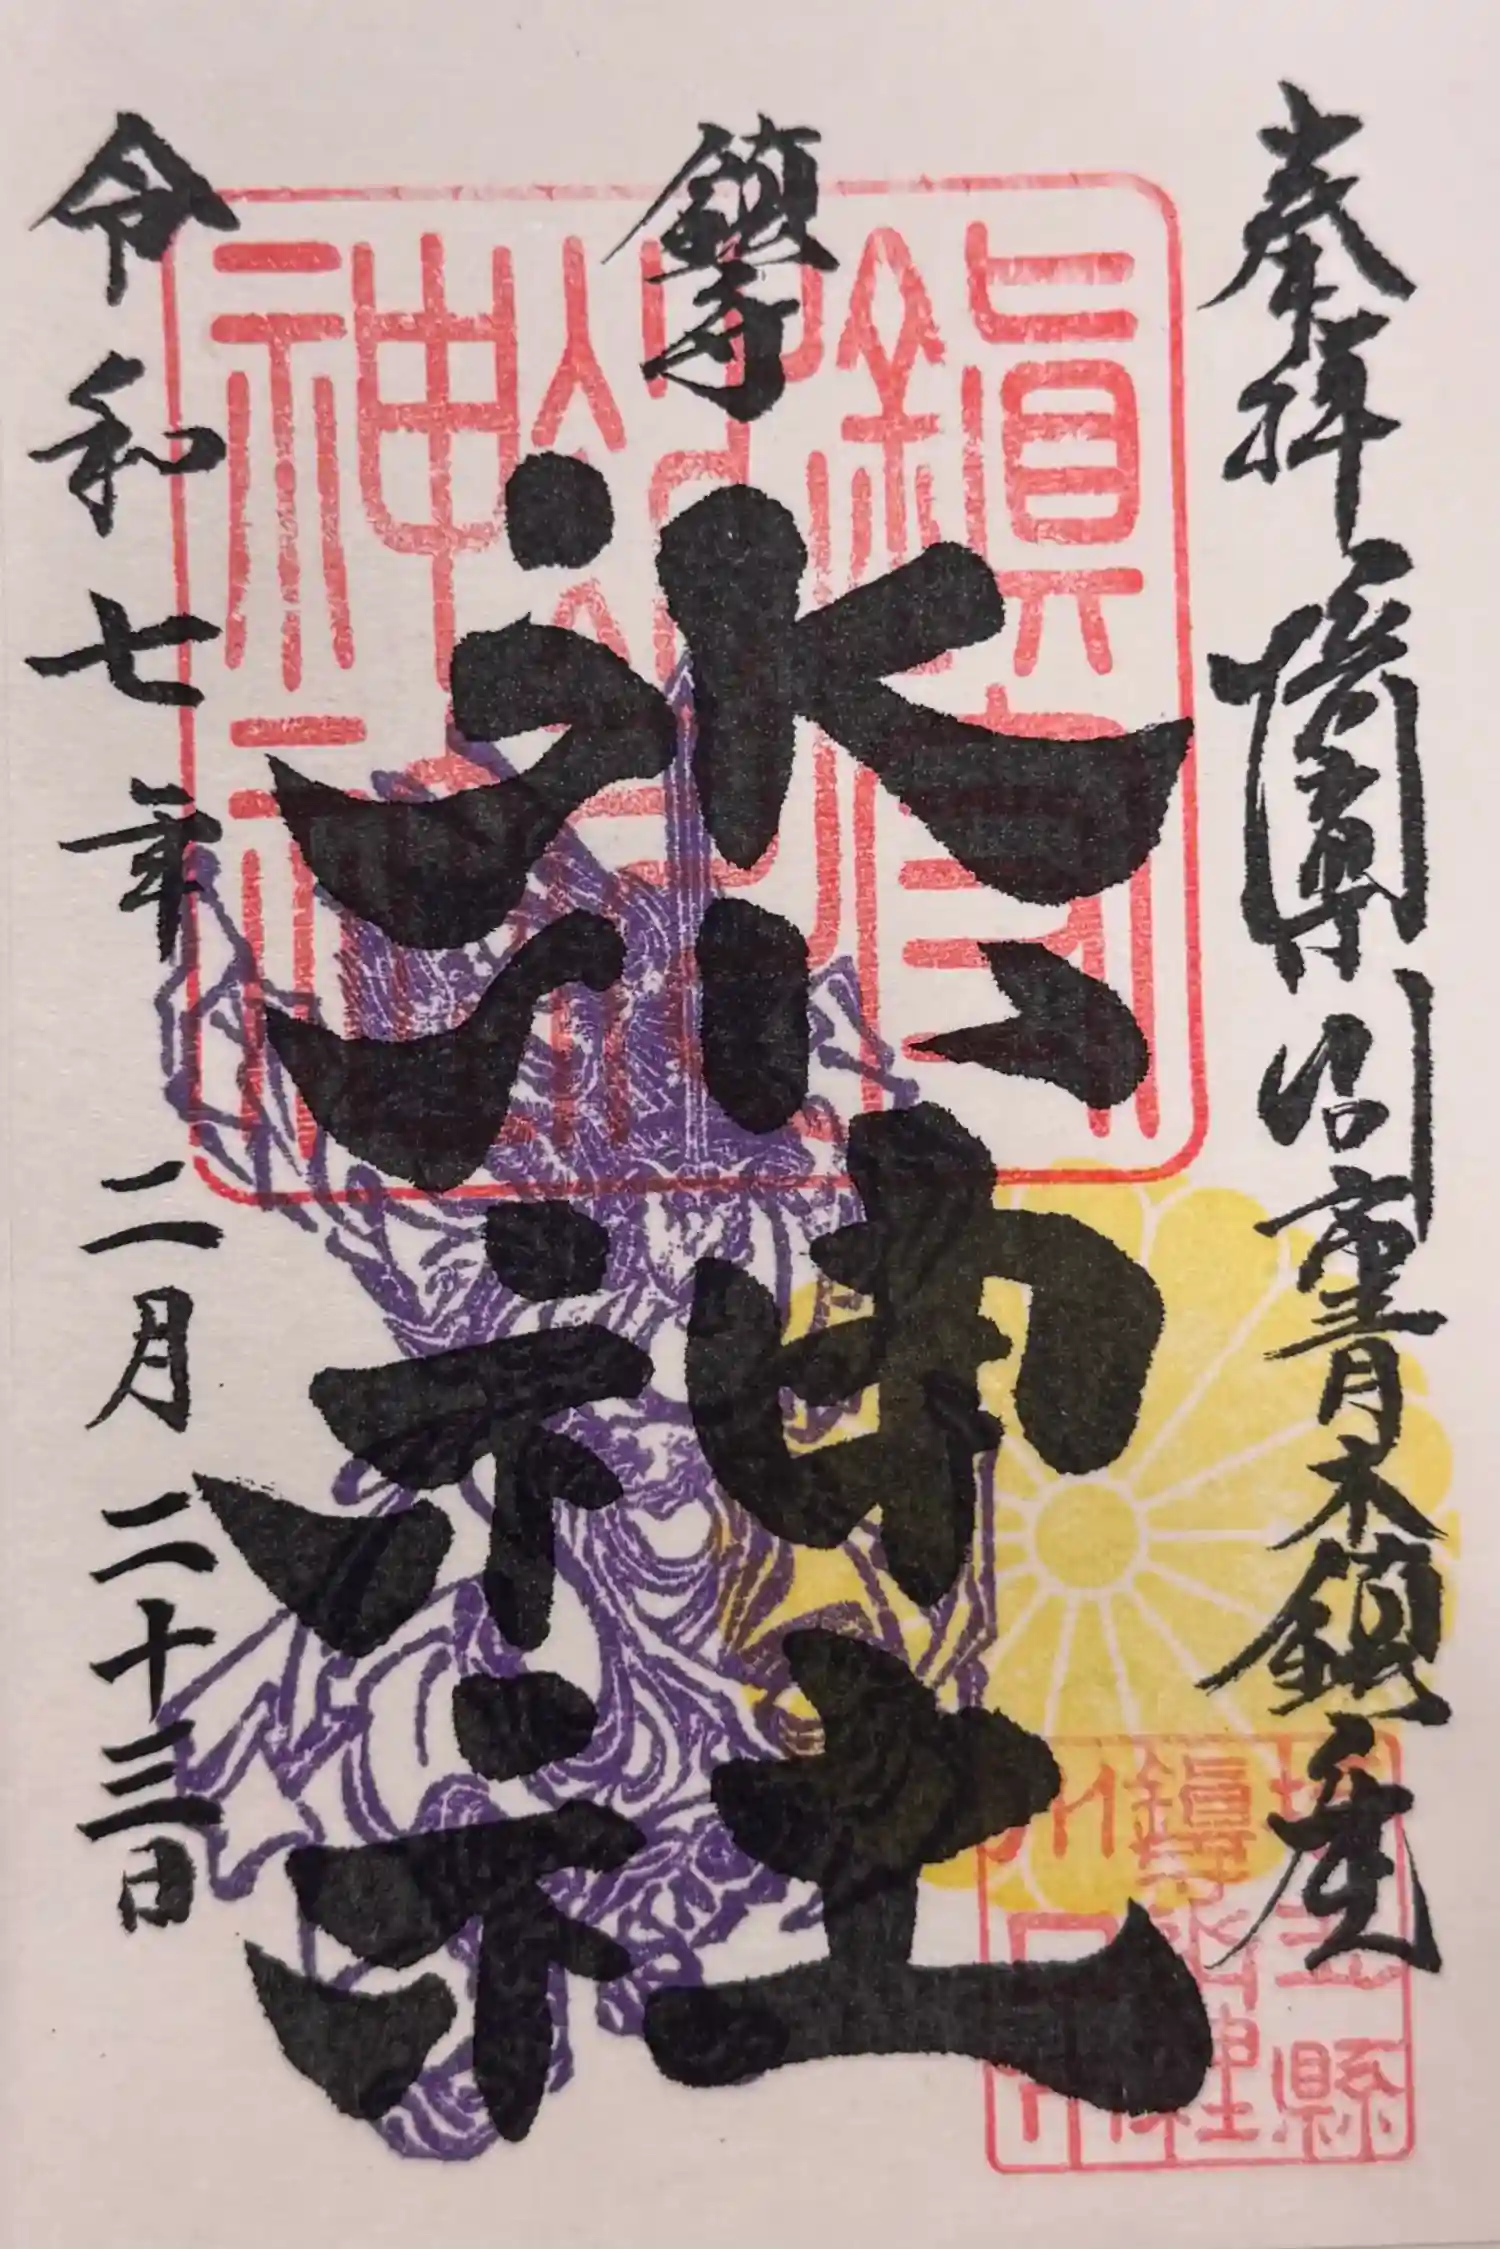 奉拝
青木鎮座
鎮守
氷川神社
令和七年 二月 二十三日
鎭守
氷川
神社
埼玉縣
鎭守氷川神社
川口